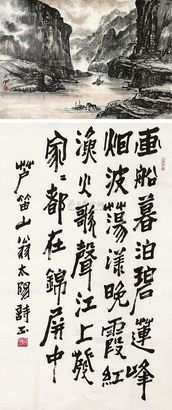 画船暮泊碧蓮峰
烟波蕩漾晚霞紅
漁火歌聲江上發
家々都在錦屏中
芦笛山翁太陽詩